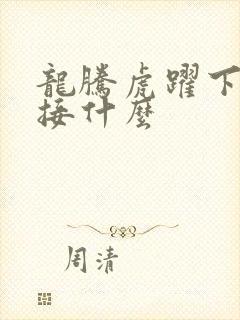 龍騰虎躍下
接什麼
周清